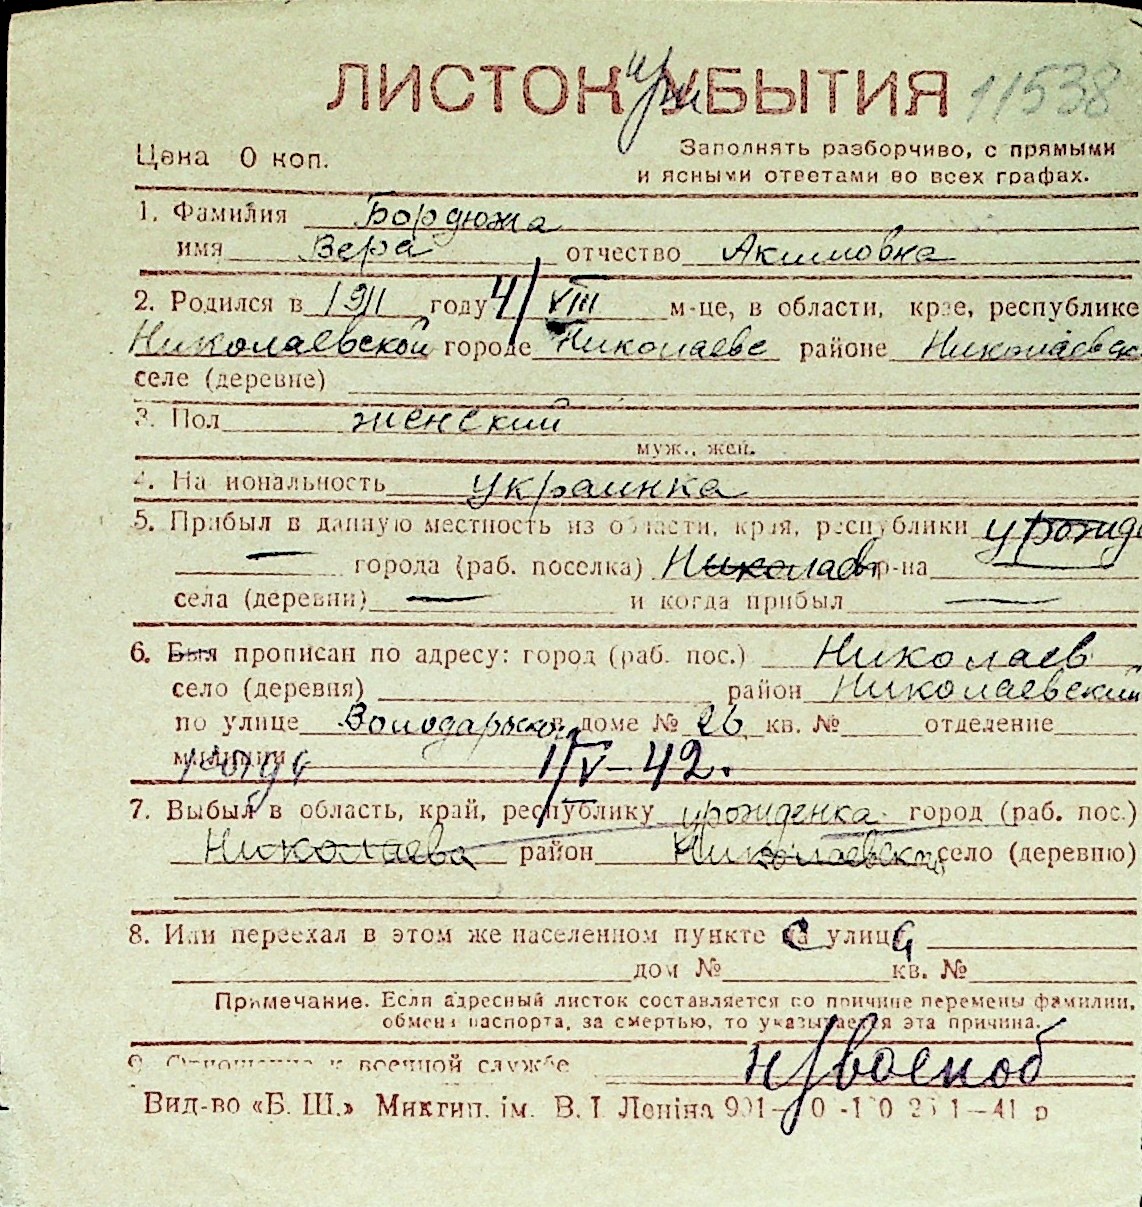 ЛИСТОК УБЫТИЯ 11538
при
Цена 0 коп.
Заполнять разборчиво, с прямыми
и ясными ответами во всех графах.
1. Фамилия Бордюжа
имя Вера отчество Акимовна
2. Родился в 1911 году 4/VIII м-це, в области, крае, республике
Николаевской городе Николаеве районе Николаевск
селе (деревне)
3. Пол женский
муж., жен.
4. Национальность украинка
5. Прибыл в данную местность из области, края, республики урожде
— города (раб. поселка) Николаев р-на
села (деревни) — и когда прибыл —
6. Был прописан по адресу: город (раб. пос.) Николаев
село (деревня) район Николаевский
по улице Володарского в доме № 26 кв. № отделение
милиции 1/V-42.
7. Выбыл в область, край, республику урожденка город (раб. пос.)
Николаева район Николаевский село (деревню)
8. Или переехал в этом же населенном пункте с улица
дом № кв. №
Примечание. Если адресный листок составляется по причине перемены фамилии,
обмена паспорта, за смертью, то указывается эта причина.
9. Отношение к военной службе н/военоб
Вид-во «Б. Ш.» Миктип. ім. В. І. Леніна